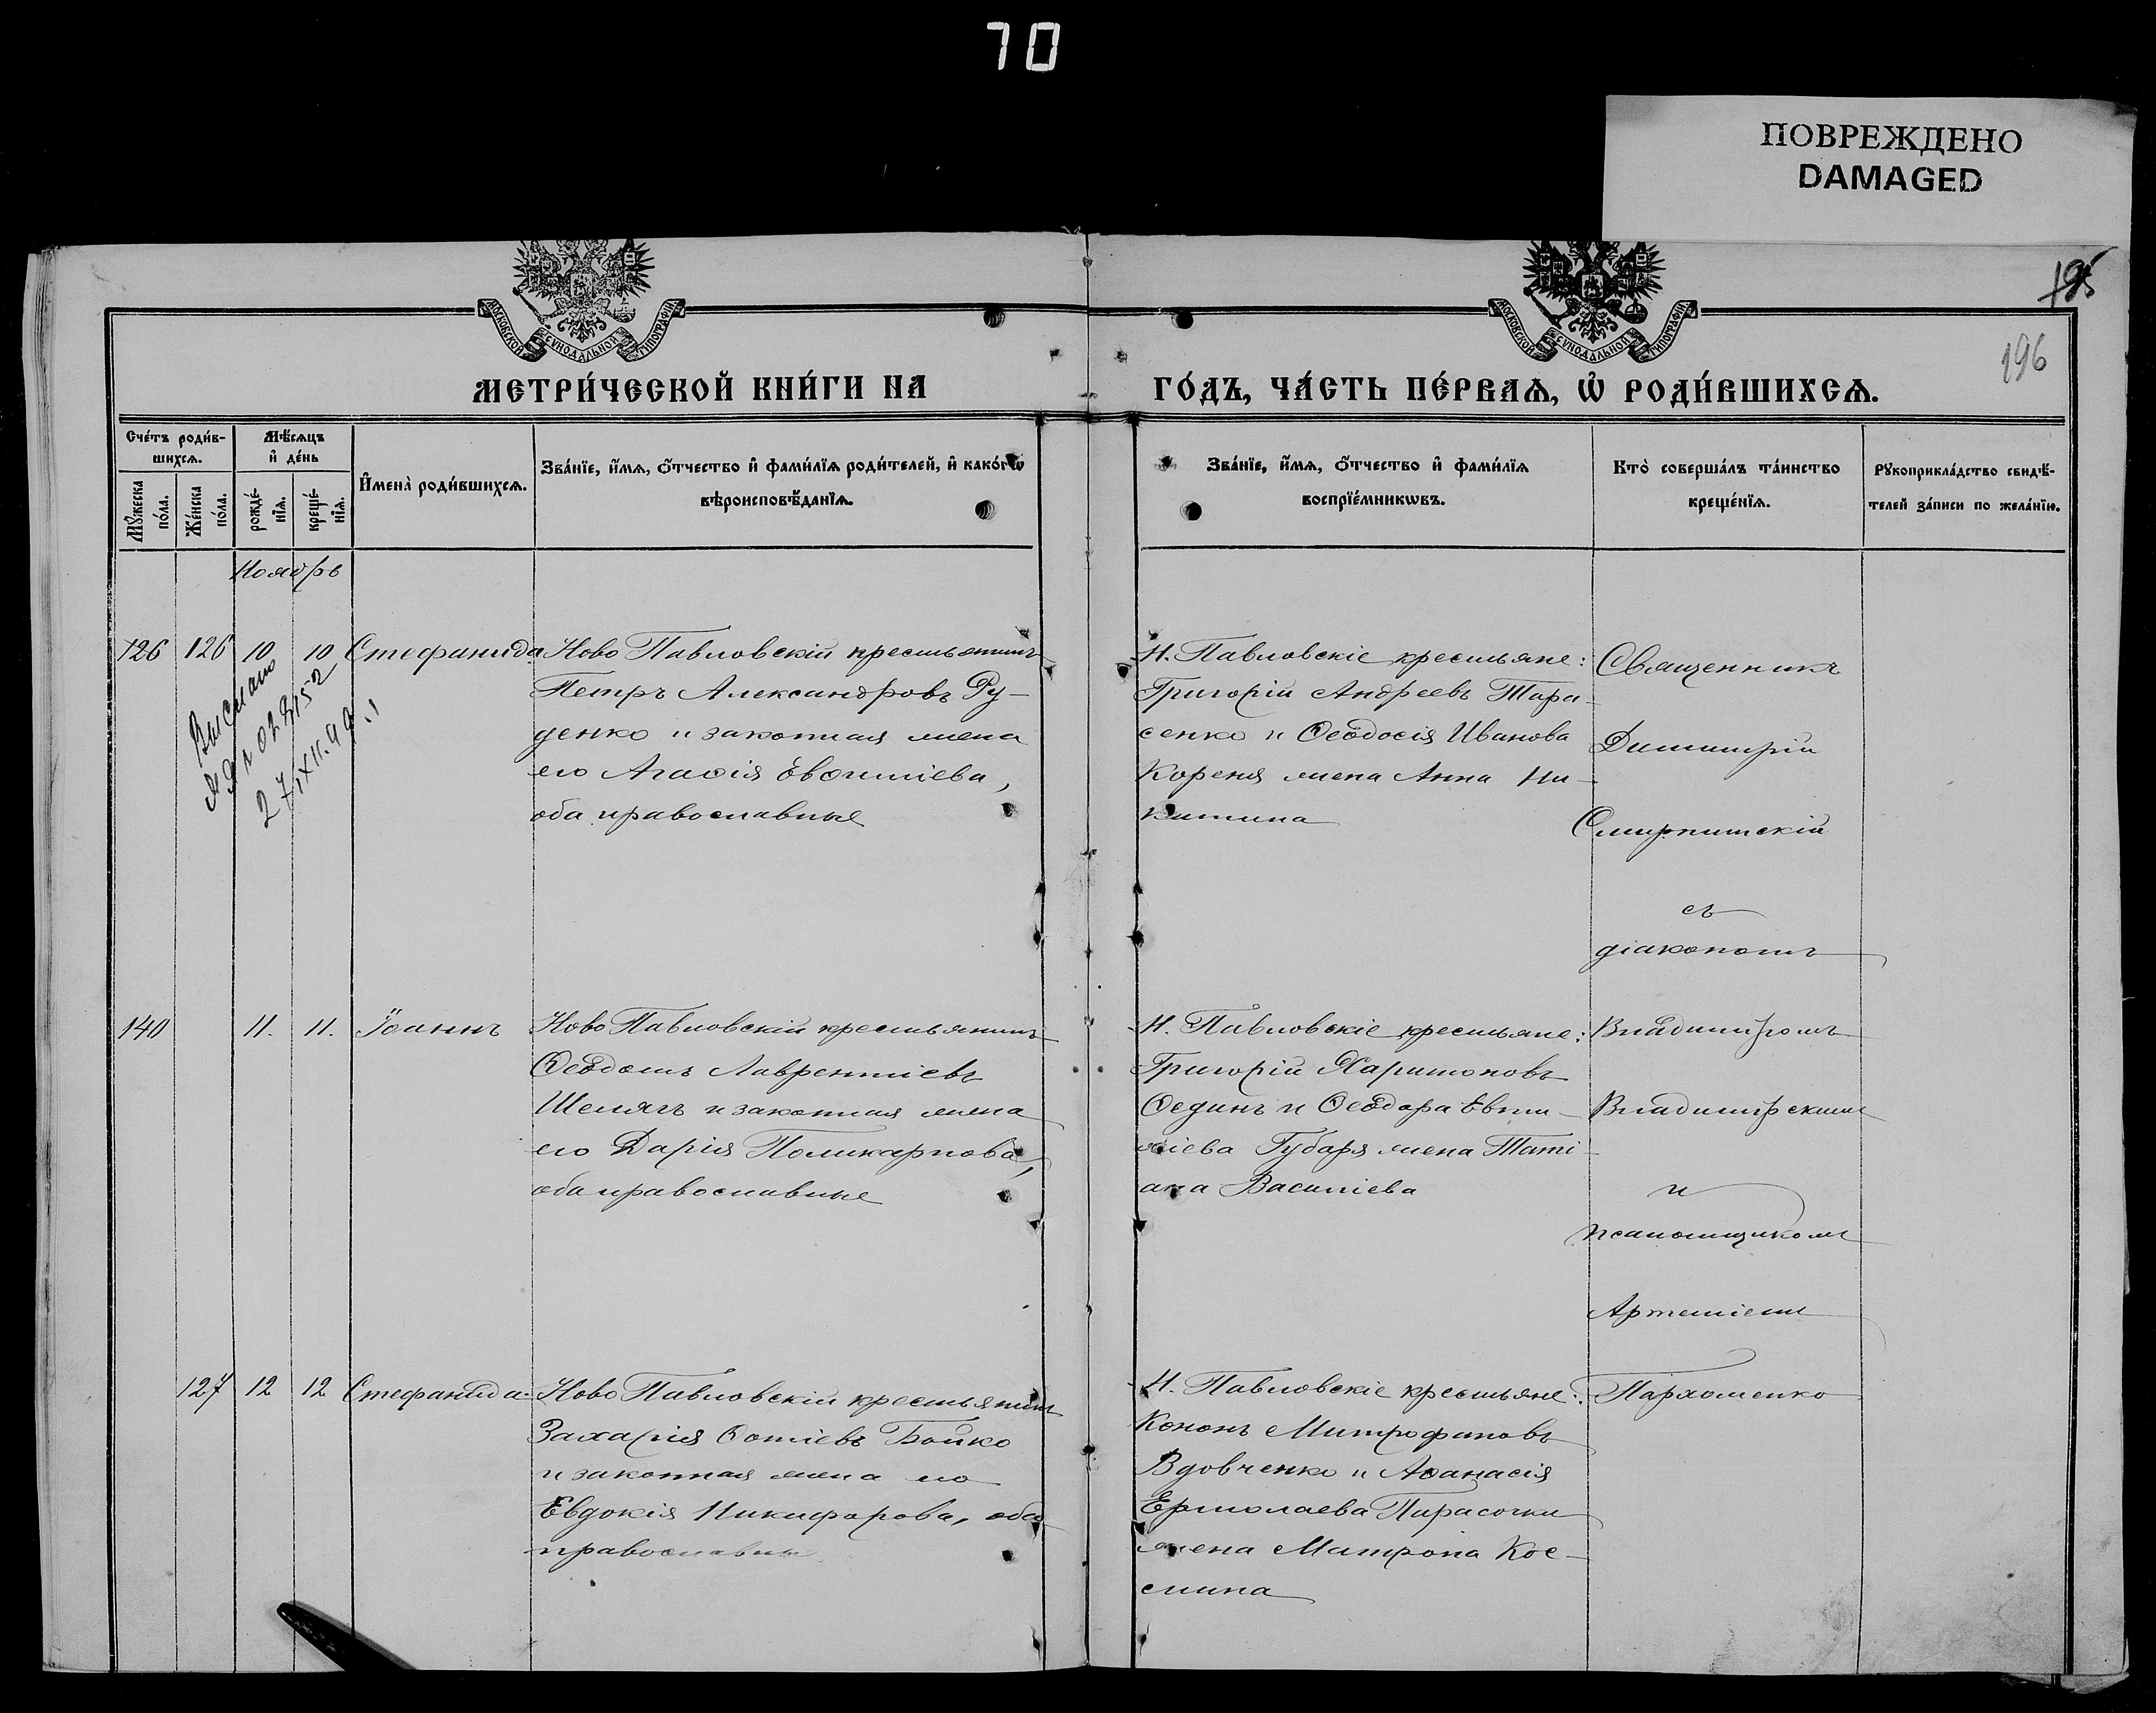 70
ПОВРЕЖДЕНО
DAMAGED
195
196
МОСКОВСКОЙ СѴНОДАЛЬНОЙ ТИПОГРАФІИ
МОСКОВСКОЙ СѴНОДАЛЬНОЙ ТИПОГРАФІИ
МЕТРИ́ЧЕСКОЙ КНИ́ГИ НА
ГО́ДЪ, ЧА́СТЬ ПЕ́РВАѦ, Ѡ҆ РОДИ́ВШИХСѦ.
Сче́тъ роди́в-
шихсѧ.
Мꙋ́жеска по́ла.
Же́нска по́ла.
Мѣ́сѧцъ
и҆ де́нь
рожде́-
нїѧ.
креще́-
нїѧ.
И҆мена̀ роди́вшихсѧ.
Зва́нїе, и҆́мѧ, ѻ҆́тчество и҆ фами́лїѧ роди́телей, и҆ како́гѡ
вѣроисповѣ́данїѧ.
Зва́нїе, и҆́мѧ, ѻ҆́тчество и҆ фами́лїѧ
воспрїе́мникѡвъ.
Кто̀ соверша́лъ та́инство
креще́нїѧ.
Рꙋкоприкла́дство свидѣ́-
телей за́писи по жела́нїю.
Ноябрь
126 126 10 10 Стефанида
Ново Павловскій крестьянинъ
Петръ Александровъ Ру-
денко и законная жена
его Агаѳія Евѳиміева,
оба православные
Н. Павловскіе крестьяне:
Григорій Андреевъ Тара-
сенко и Ѳеодосія Иванова
Кореня жена Анна Ни-
китина
Священникъ
Димитрій
Смирнитскій
съ
діакономъ
Выслано
27/XII.49 г.
140 11. 11. Іоаннъ
Ново Павловскій крестьянинъ
Ѳеодосій Лаврентіевъ
Шелягъ и законная жена
его Дарія Поликарпова,
оба православные
Н. Павловскіе крестьяне:
Григорій Харитоновъ
Ѳединъ и Ѳеодора Евти-
хіева Губаря жена Таті-
ана Василіева
Владиміромъ
Владимірскимъ
и
псаломщикомъ
Артеміемъ
Пархоменко
127 12 12 Стефанида
Ново Павловскій крестьянинъ
Захарія Ѳотіевъ Бойко
и законная жена его
Евдокія Никифорова, оба
православные
Н. Павловскіе крестьяне:
Кононъ Митрофановъ
Вдовченко и Аѳанасія
Ермолаева Парасочки
жена Матрона Кос-
мина